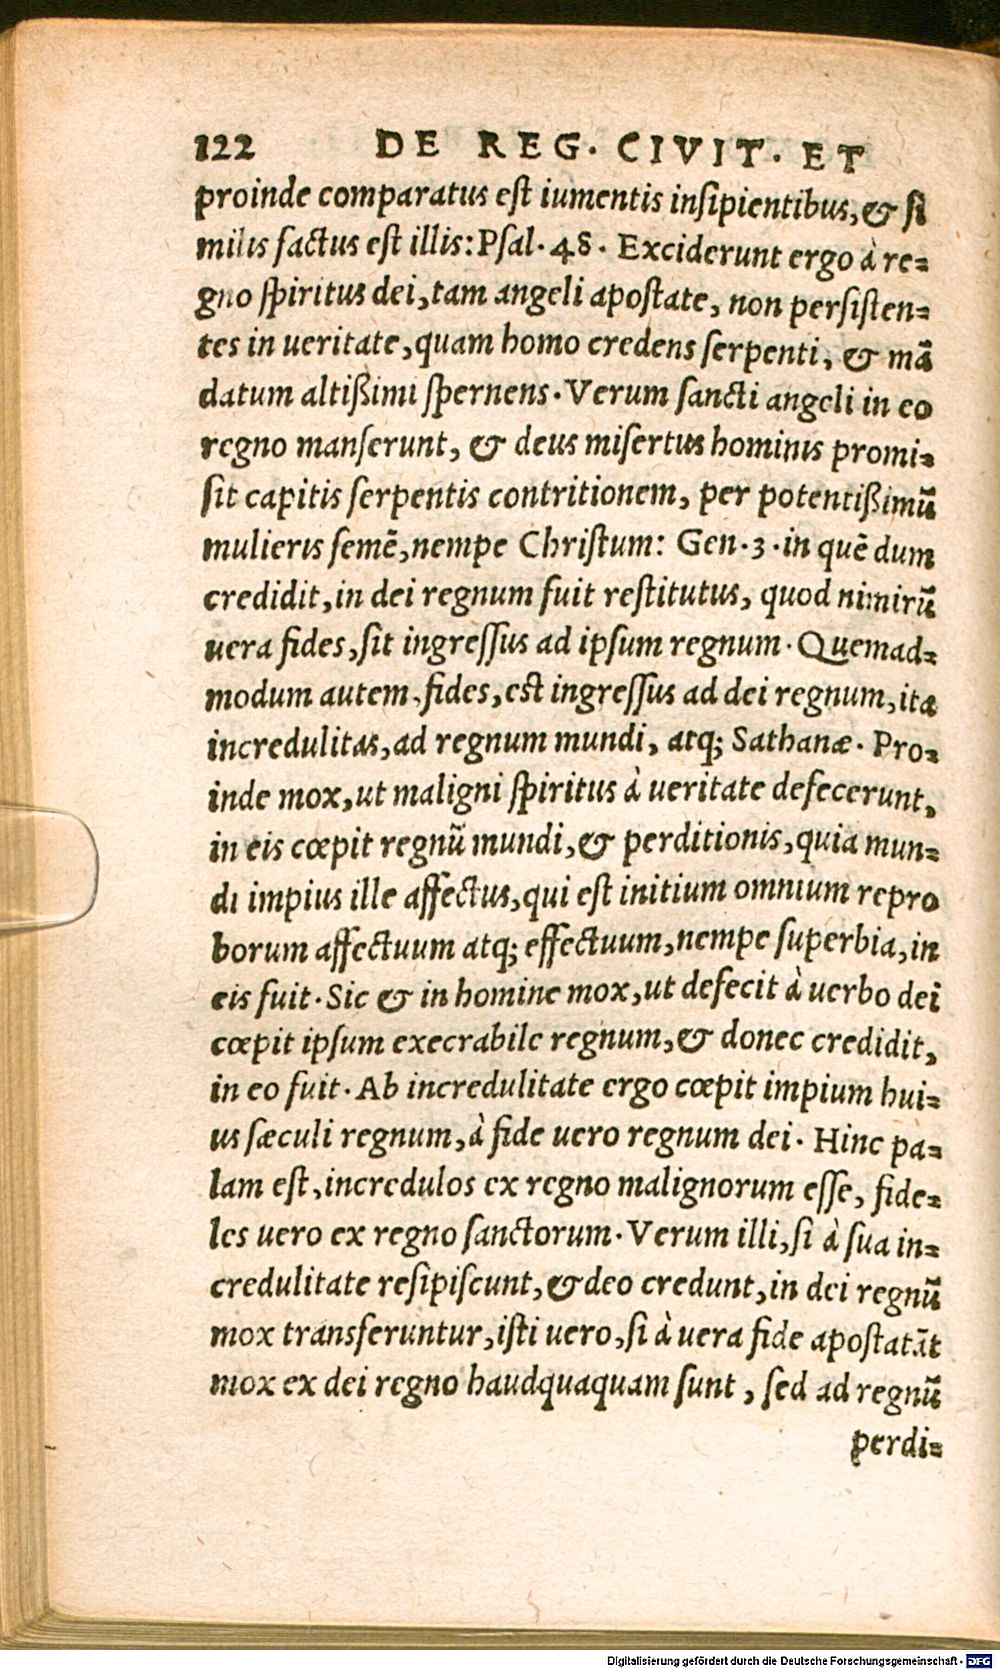 122 DE REG. CIVIT. ET
proinde comparatus est iumentis insipientibus, & si
milis factus est illis: Psal. 48. Exciderunt ergo à re=
gno spiritus dei, tam angeli apostate, non persisten=
tes in ueritate, quam homo credens serpenti, & mā
datum altißimi spernens. Verum sancti angeli in eo
regno manserunt, & deus misertus hominis promi=
sit capitis serpentis contritionem, per potentißimū
mulieris semē, nempe Christum: Gen. 3. in quē dum
credidit, in dei regnum fuit restitutus, quod nimirū
uera fides, sit ingressus ad ipsum regnum. Quemad=
modum autem fides, est ingressus ad dei regnum, ita
incredulitas, ad regnum mundi, atq; Sathanæ. Pro=
inde mox, ut maligni spiritus à ueritate defecerunt,
in eis cœpit regnū mundi, & perditionis, quia mun=
di impius ille affectus, qui est initium omnium repro
borum affectuum atq; effectuum, nempe superbia, in
eis fuit. Sic & in homine mox, ut defecit à uerbo dei
cœpit ipsum execrabile regnum, & donec credidit,
in eo fuit. Ab incredulitate ergo cœpit impium hui=
us sæculi regnum, à fide uero regnum dei. Hinc pa=
lam est, incredulos ex regno malignorum esse, fide=
les uero ex regno sanctorum. Verum illi, si à sua in=
credulitate resipiscunt, & deo credunt, in dei regnū
mox transferuntur, isti uero, si à uera fide apostatāt
mox ex dei regno haudquaquam sunt, sed ad regnū
perdi=
Digitalisierung gefördert durch die Deutsche Forschungsgemeinschaft - DFG